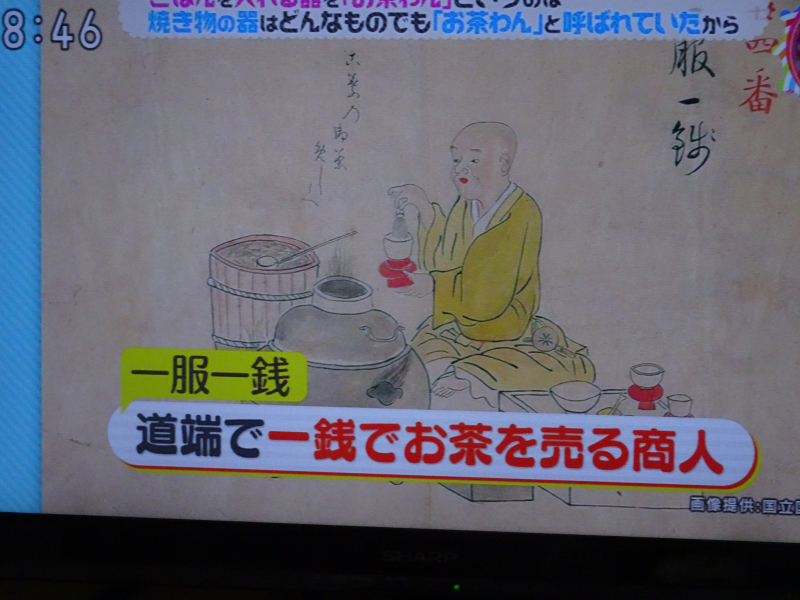 8:46
ごはんを入れる器を「お茶わん」というのは
焼き物の器はどんなものでも「お茶わん」と呼ばれていたから
四番
服一銭
一服一銭
道端で一銭でお茶を売る商人
画像提供:国立
SHARP